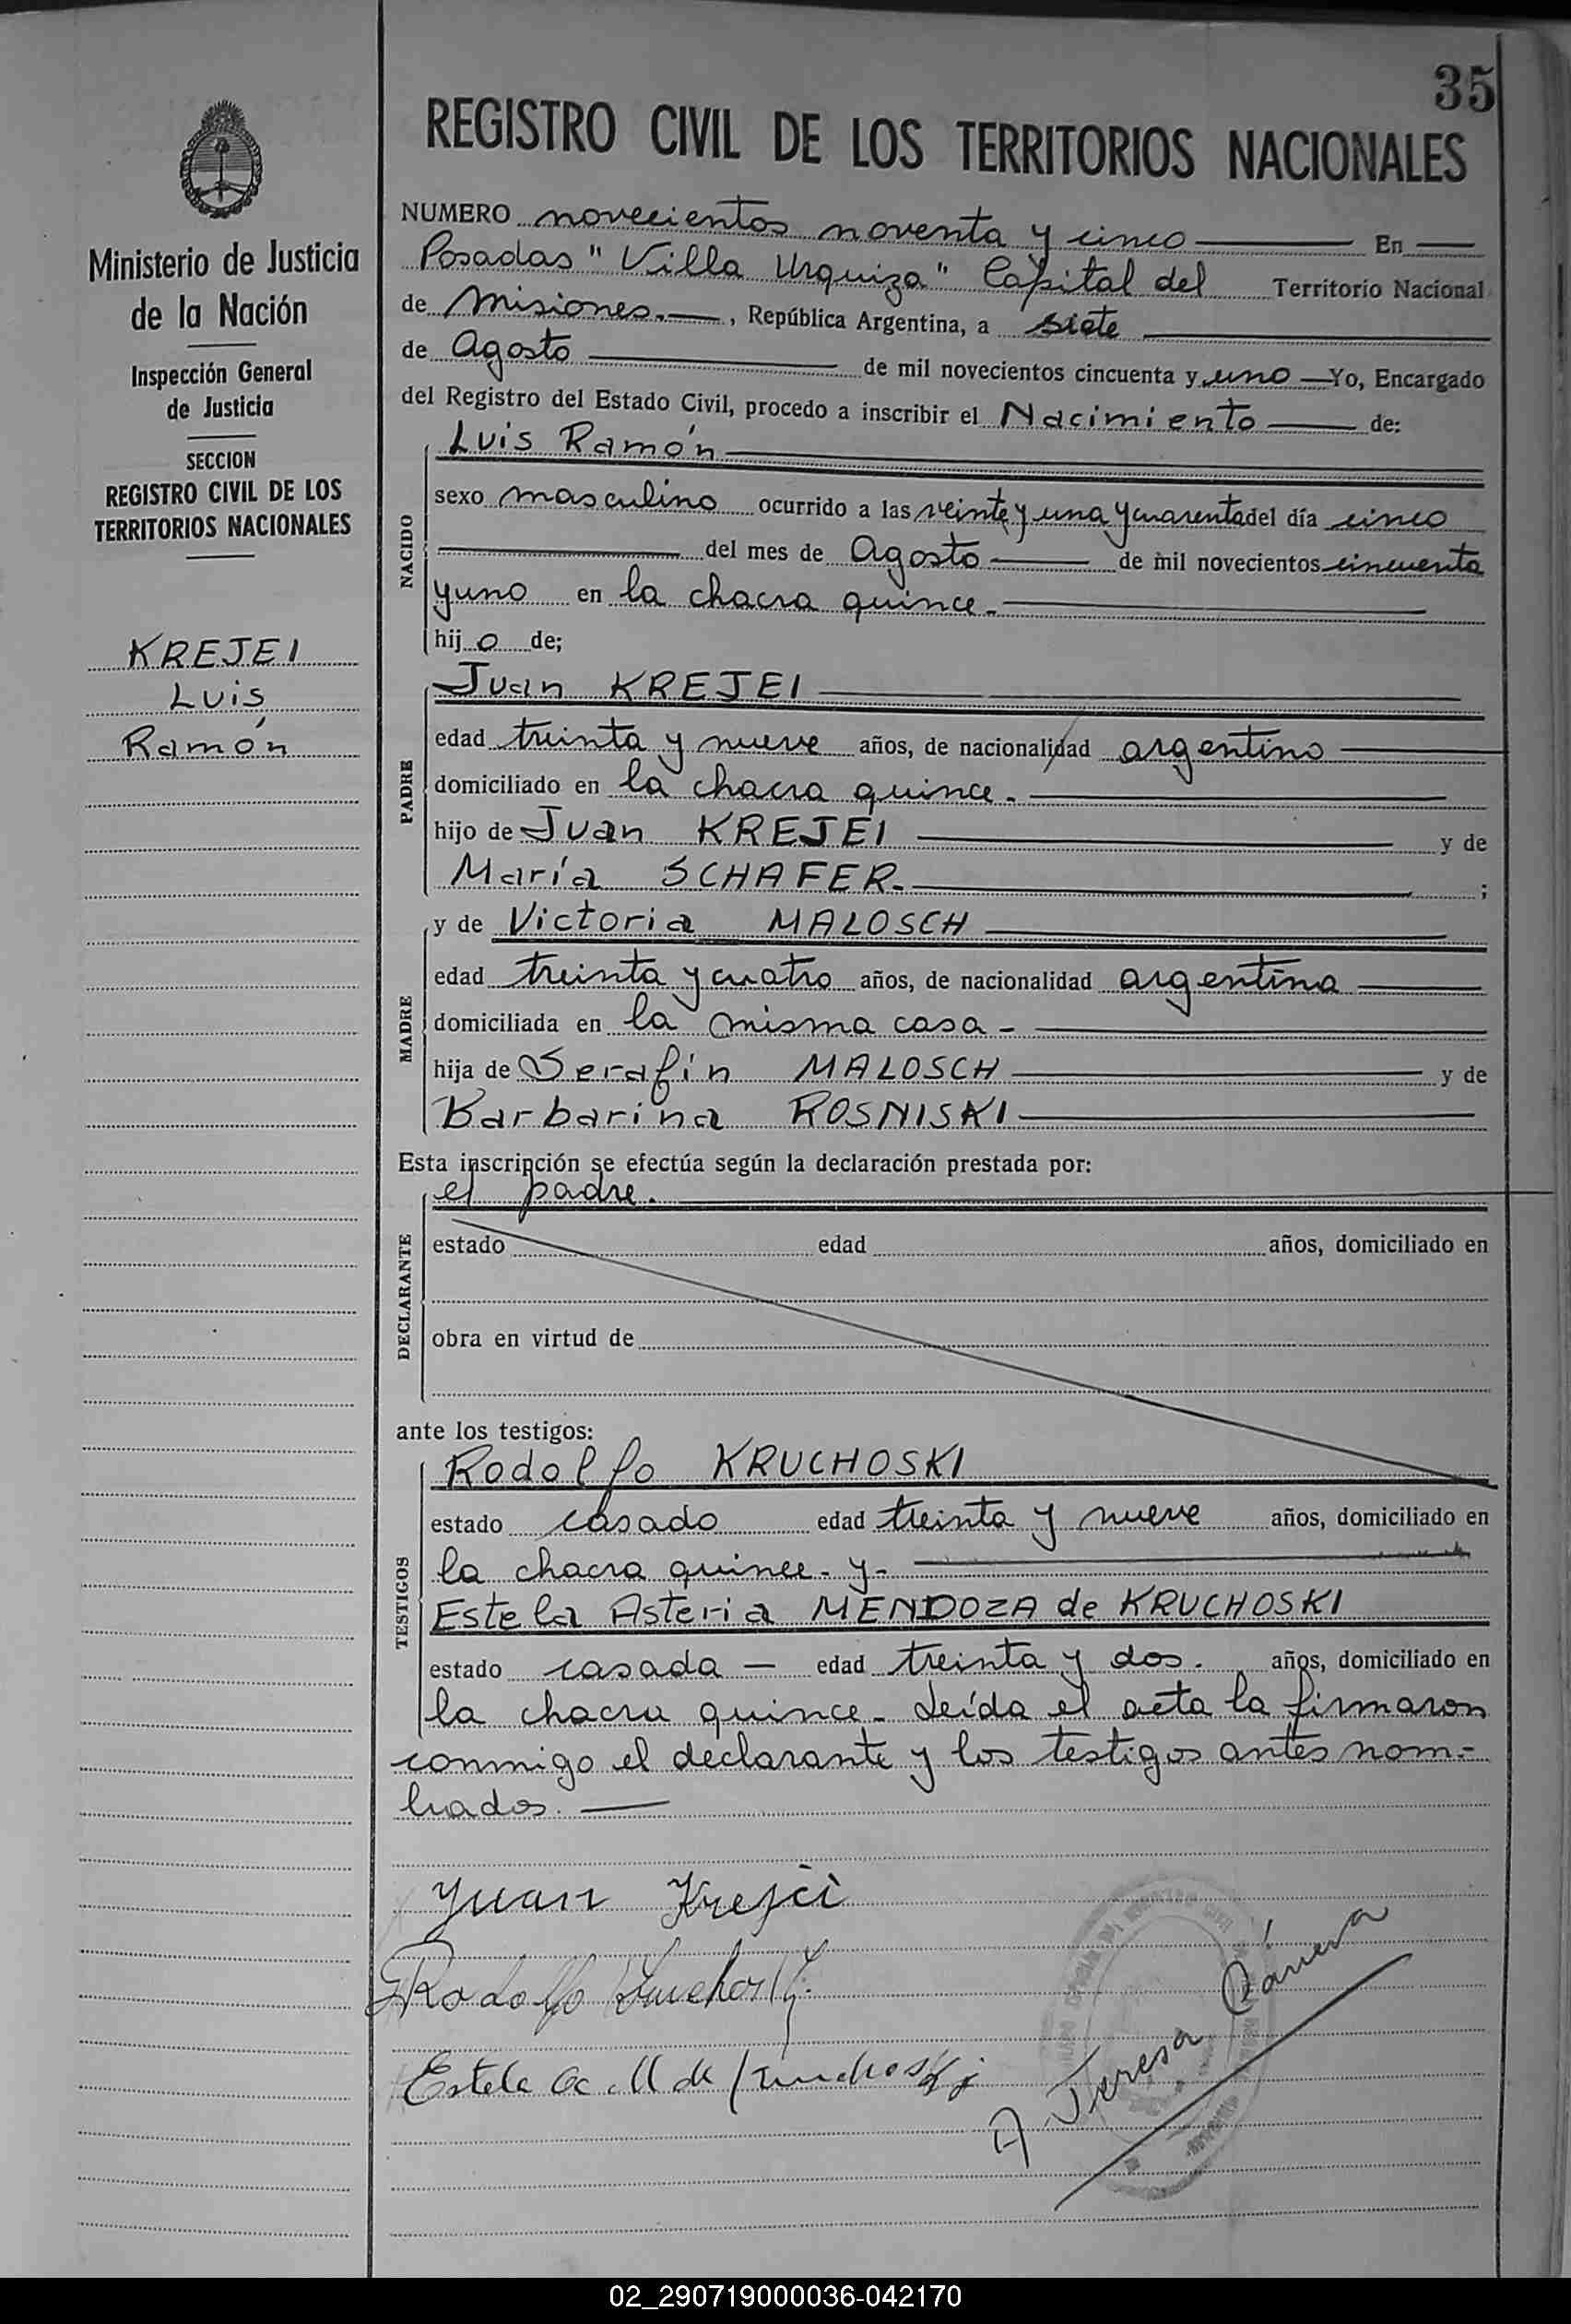 35
REGISTRO CIVIL DE LOS TERRITORIOS NACIONALES
Ministerio de Justicia
de la Nación
Inspección General
de Justicia
SECCION
REGISTRO CIVIL DE LOS
TERRITORIOS NACIONALES
KREJEI
Luis
Ramón
NUMERO novecientos noventa y cinco En
Posadas "Villa Urquiza" Capital del Territorio Nacional
de Misiones.—, República Argentina, a siete
de Agosto de mil novecientos cincuenta y uno — Yo, Encargado
del Registro del Estado Civil, procedo a inscribir el Nacimiento de:
NACIDO
Luis Ramón
sexo masculino ocurrido a las veinte y una y cuarenta del día cinco
del mes de Agosto de mil novecientos cincuenta
y uno en la chacra quince.
hijo de;
PADRE
Juan KREJEI
edad treinta y nueve años, de nacionalidad argentino
domiciliado en la chacra quince.
hijo de Juan KREJEI y de
María SCHAFER. ;
MADRE
y de Victoria MALOSCH
edad treinta y cuatro años, de nacionalidad argentina
domiciliada en la misma casa -
hija de Serafín MALOSCH y de
Barbarina ROSNISKI
Esta inscripción se efectúa según la declaración prestada por:
DECLARANTE
el padre.
estado edad años, domiciliado en
obra en virtud de
ante los testigos:
TESTIGOS
Rodolfo KRUCHOSKI
estado casado edad treinta y nueve años, domiciliado en
la chacra quince - y -
Estela Asteria MENDOZA de KRUCHOSKI
estado casada — edad treinta y dos. años, domiciliado en
la chacra quince - Leída el acta la firmaron
conmigo el declarante y los testigos antes nom-
brados. —
Juan Krejci
Rodolfo Kruchoski
Estela A. M de Kruchoski
A Teresa
02_290719000036-042170